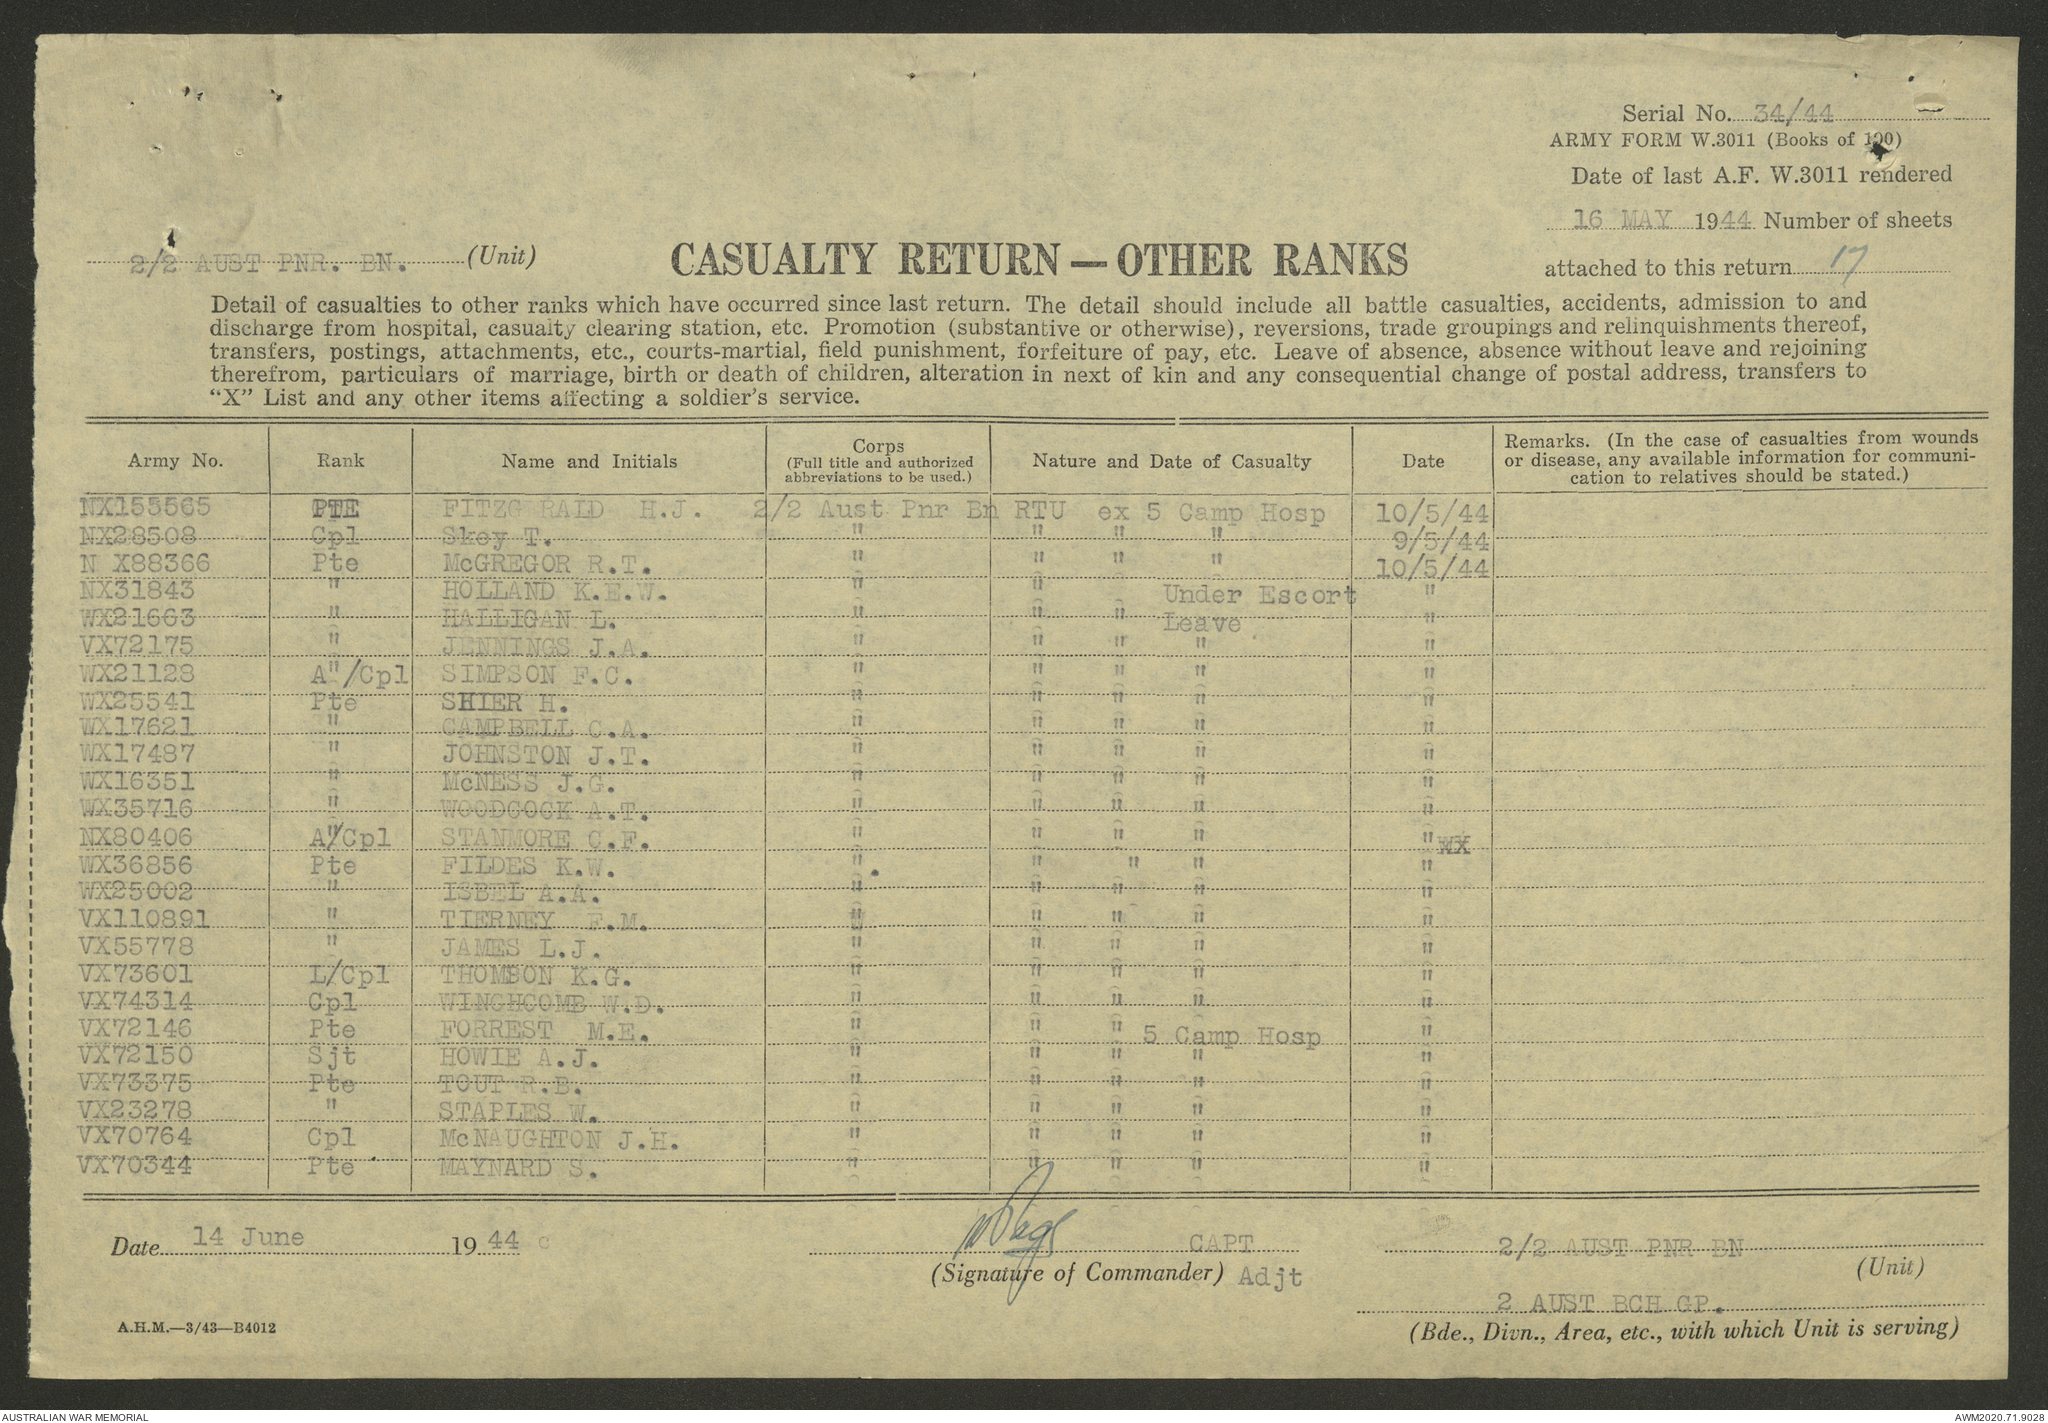 Serial No. 34/44
ARMY FORM W.3011 (Books of 100)
Date of last A.F. W.3011 rendered
16 MAY 1944 Number of sheets
attached to this return 17
2/2 AUST PNR. BN. (Unit)
CASUALTY RETURN — OTHER RANKS
Detail of casualties to other ranks which have occurred since last return. The detail should include all battle casualties, accidents, admission to and
discharge from hospital, casualty clearing station, etc. Promotion (substantive or otherwise), reversions, trade groupings and relinquishments thereof,
transfers, postings, attachments, etc., courts-martial, field punishment, forfeiture of pay, etc. Leave of absence, absence without leave and rejoining
therefrom, particulars of marriage, birth or death of children, alteration in next of kin and any consequential change of postal address, transfers to
"X" List and any other items affecting a soldier's service.
Army No. Rank Name and Initials Corps (Full title and authorized abbreviations to be used.) Nature and Date of Casualty Date Remarks. (In the case of casualties from wounds or disease, any available information for communication to relatives should be stated.)
NX155565 PTE FITZG RALD H.J. 2/2 Aust Pnr Bn RTU ex 5 Camp Hosp 10/5/44
NX28508 Cpl Skey T. " " " " 9/5/44
N X88366 Pte McGREGOR R.T. " " " " 10/5/44
NX31843 " HOLLAND K.E.W. " " Under Escort "
WX21663 " HALLIGAN L. " " " Leave "
VX72175 " JENNINGS J.A. " " " " "
WX21128 A"/Cpl SIMPSON F.C. " " " " "
WX25541 Pte SHIER H. " " " " "
WX17621 " CAMPBELL C.A. " " " " "
WX17487 " JOHNSTON J.T. " " " " "
WX16351 " McNESS J.G. " " " " "
WX35716 " WOODCOCK A.T. " " " " "
NX80406 A"/Cpl STANMORE C.F. " " " " " WX
WX36856 Pte FILDES K.W. " " " " "
WX25002 " ISBEL A.A. " " " " "
VX110891 " TIERNEY F.M. " " " " "
VX55778 " JAMES L.J. " " " " "
VX73601 L/Cpl THOMSON K.G. " " " " "
VX74314 Cpl WINCHCOMB W.D. " " " " "
VX72146 Pte FORREST M.E. " " " 5 Camp Hosp "
VX72150 Sjt HOWIE A.J. " " " " "
VX73375 Pte TOUT R.B. " " " " "
VX23278 " STAPLES W. " " " " "
VX70764 Cpl McNAUGHTON J.H. " " " " "
VX70344 Pte MAYNARD S. " " " " "
Date 14 June 1944 c
CAPT
(Signature of Commander) Adjt
2/2 AUST PNR BN
(Unit)
2 AUST BCH GP.
(Bde., Divn., Area, etc., with which Unit is serving)
A.H.M.—3/43—B4012
AUSTRALIAN WAR MEMORIAL
AWM2020.71.9028